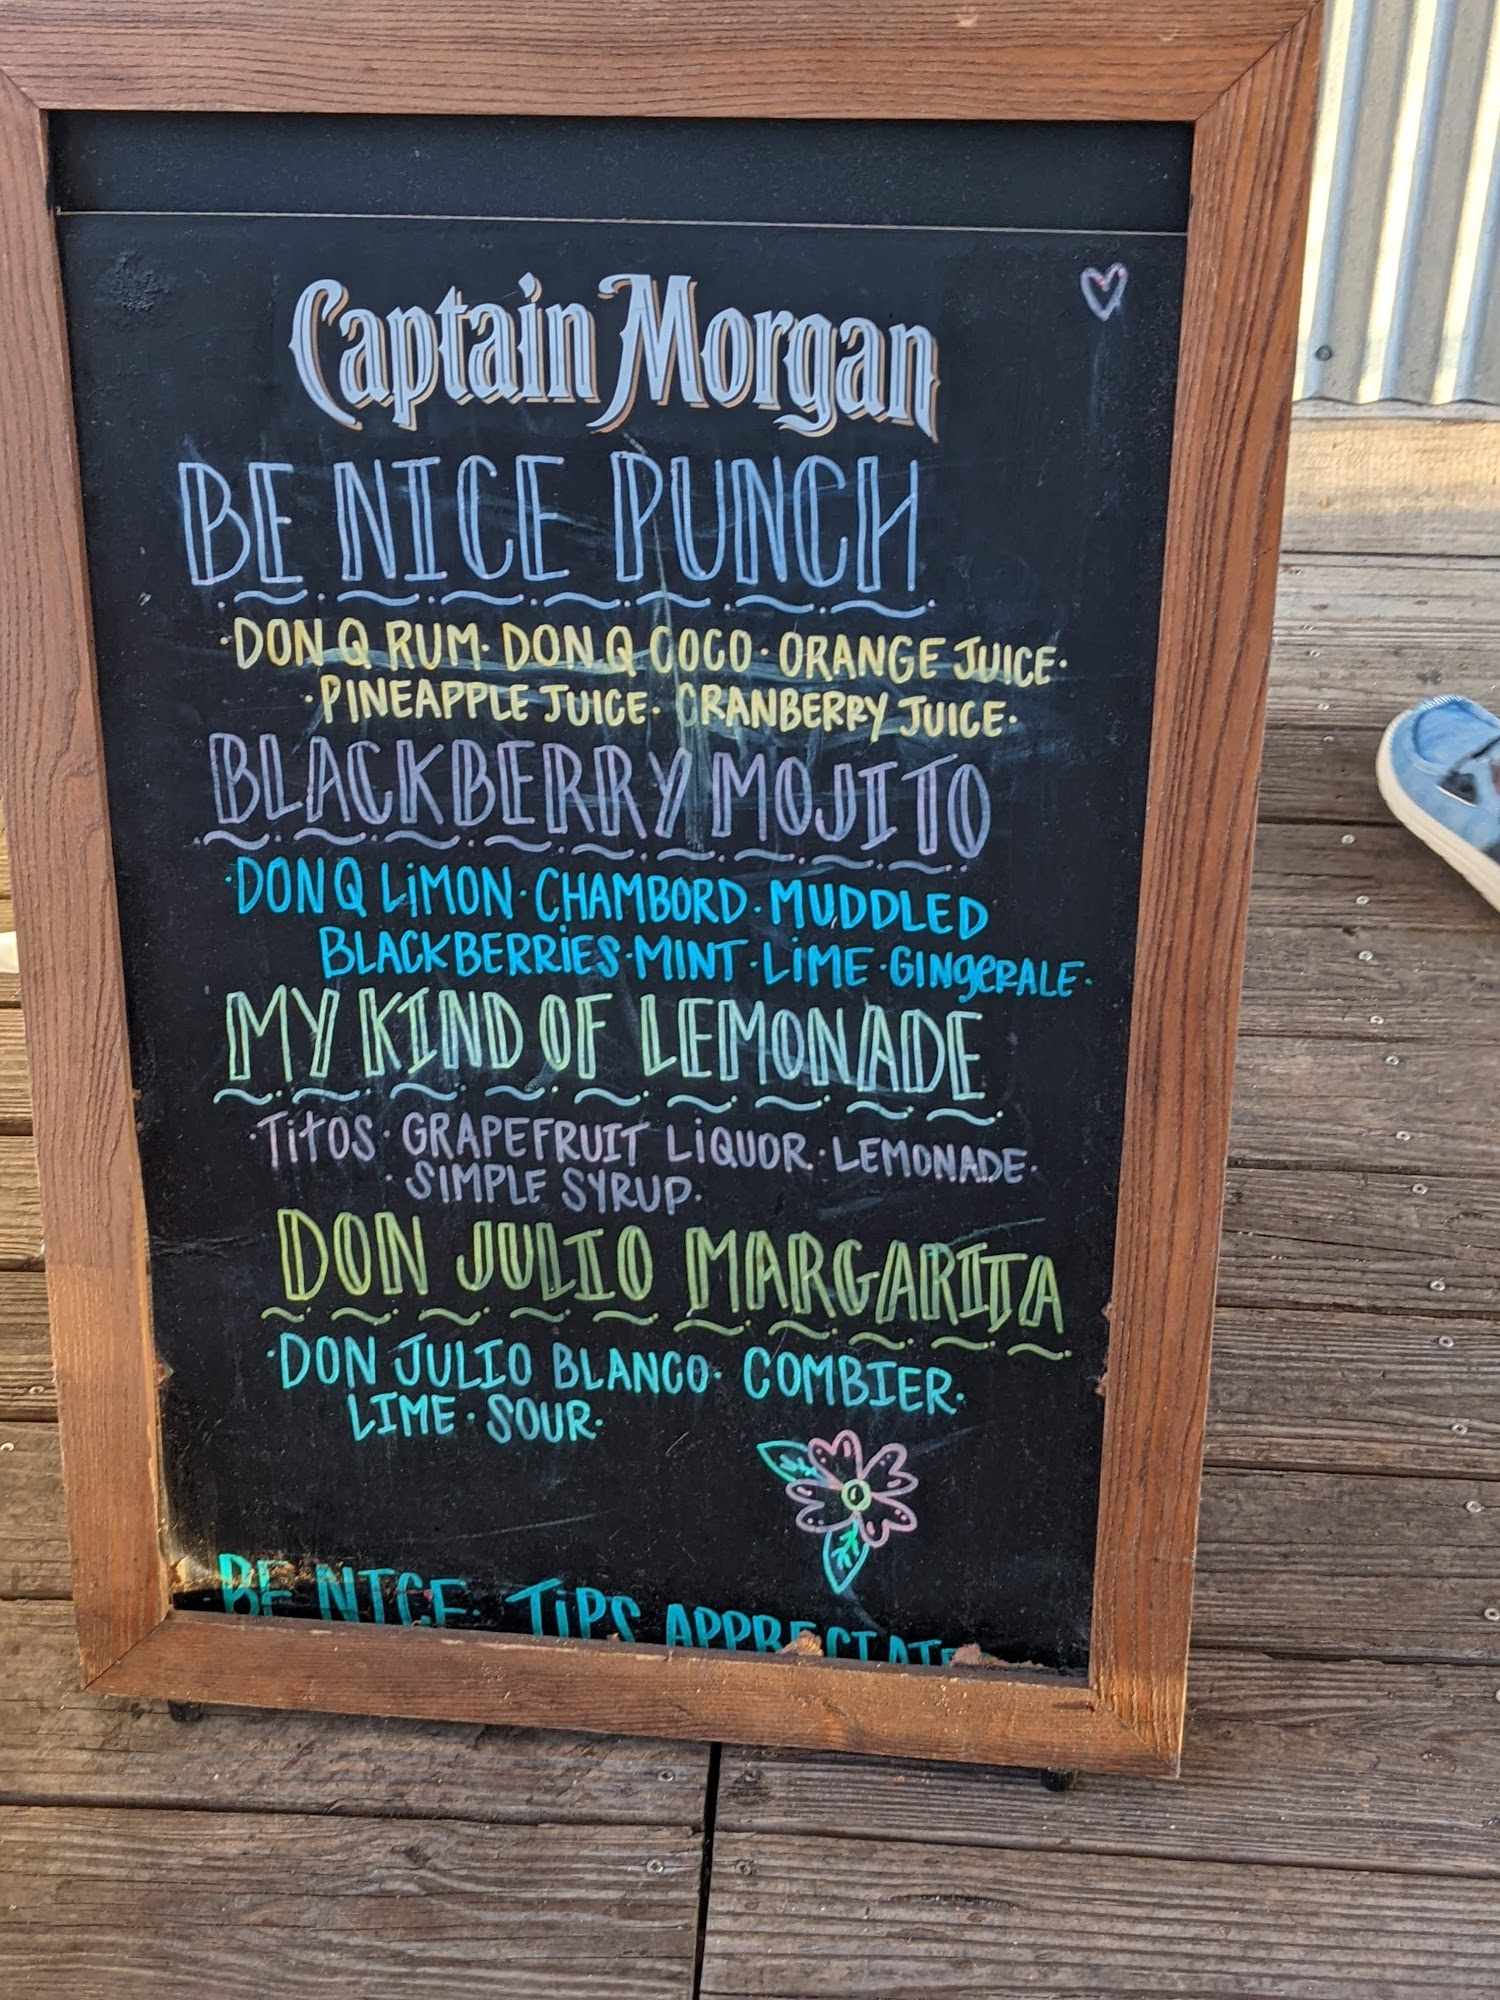 Captain Morgan
BE NICE PUNCH
·DON Q RUM· DON Q COCO · ORANGE JUICE·
·PINEAPPLE JUICE· CRANBERRY JUICE·
BLACKBERRY MOJITO
·DON Q LiMON· CHAMBORD · MUDDLED
BLACKBERRiES·MINT·LiME·GINgeRALE·
MY KIND OF LEMONADE
·TiTOS· GRAPEFRUIT LiQUOR·LEMONADE·
·SIMPLE SYRUP·
DON JULIO MARGARITA
·DON JULIO BLANCO· COMBIER·
LIME· SOUR·
·BE NICE· TiPS APPRECIATE